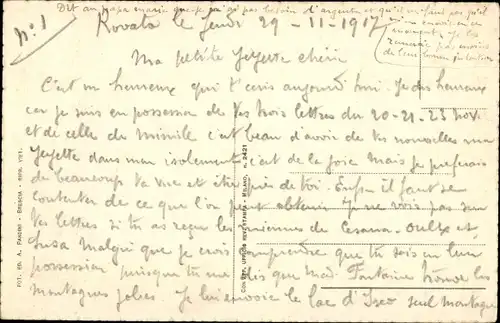 Dit au papa marie que je n'ai pas besoin d'argent et qu'il
n° 1
Rovato le Jeudi 29 - 11 - 1917
Ma petite Yeyette chérie
C'est un heureux qui t'écris aujourd'hui. Je dis heureux
car je suis en possession de tes trois lettres du 20-21-23 Nov.
et de celle du c'est beau d'avoir de tes nouvelles ma
Yeyette dans mon isolement c'est de la joie mais je préférais
de beaucoup ta vue et être près de toi. Enfin il faut se
contenter de ce que l'on peut obtenir. Je ne vois pas sur
tes lettres si tu as reçu les miennes de Cesana - Oulx et
Susa malgré que je crois comprendre que tu sois en leur
possession puisque tu me dis que Mad. Fontaine trouve les
montagnes jolies. Je lui envoie le lac d'Iseo seul montagne
FOT. ED. A. PANERO - BRESCIA - RIPR. VIET.
CON DEP. UFFICIO REV. STAMPA - MILANO, n. 2421